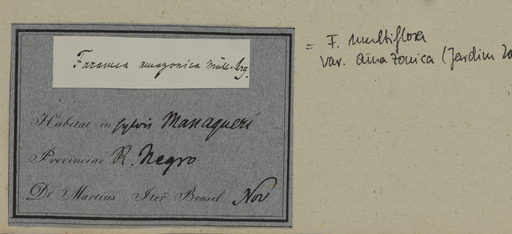 Faramea amazonica Müll. Arg.
Habitat in sylvis Manaqueri
Provinciae R. Negro
Dr Martius Iter Brasil. Nov
= F. multiflora
var. amazonica (Jardim